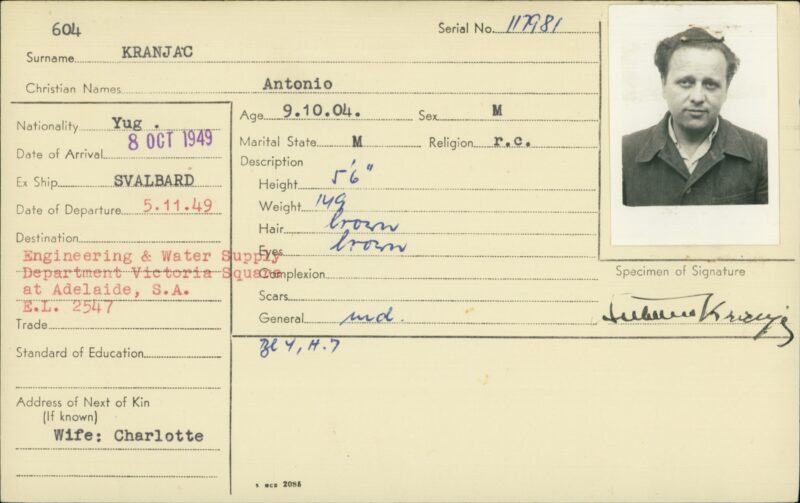 604
Serial No. 117981
Surname KRANJAC
Christian Names Antonio
Nationality Yug.
Date of Arrival 8 OCT 1949
Ex Ship SVALBARD
Date of Departure 5.11.49
Destination
Engineering & Water Supply
Department Victoria Square
at Adelaide, S.A.
E.L. 2547
Trade
Standard of Education
Address of Next of Kin
(If known)
Wife: Charlotte
Age 9.10.04. Sex M
Marital State M Religion r.c.
Description
Height 5'6"
Weight 149
Hair brown
Eyes brown
Complexion
Scars
General md.
Bl 4, H.7
Specimen of Signature
Kranjac
2086